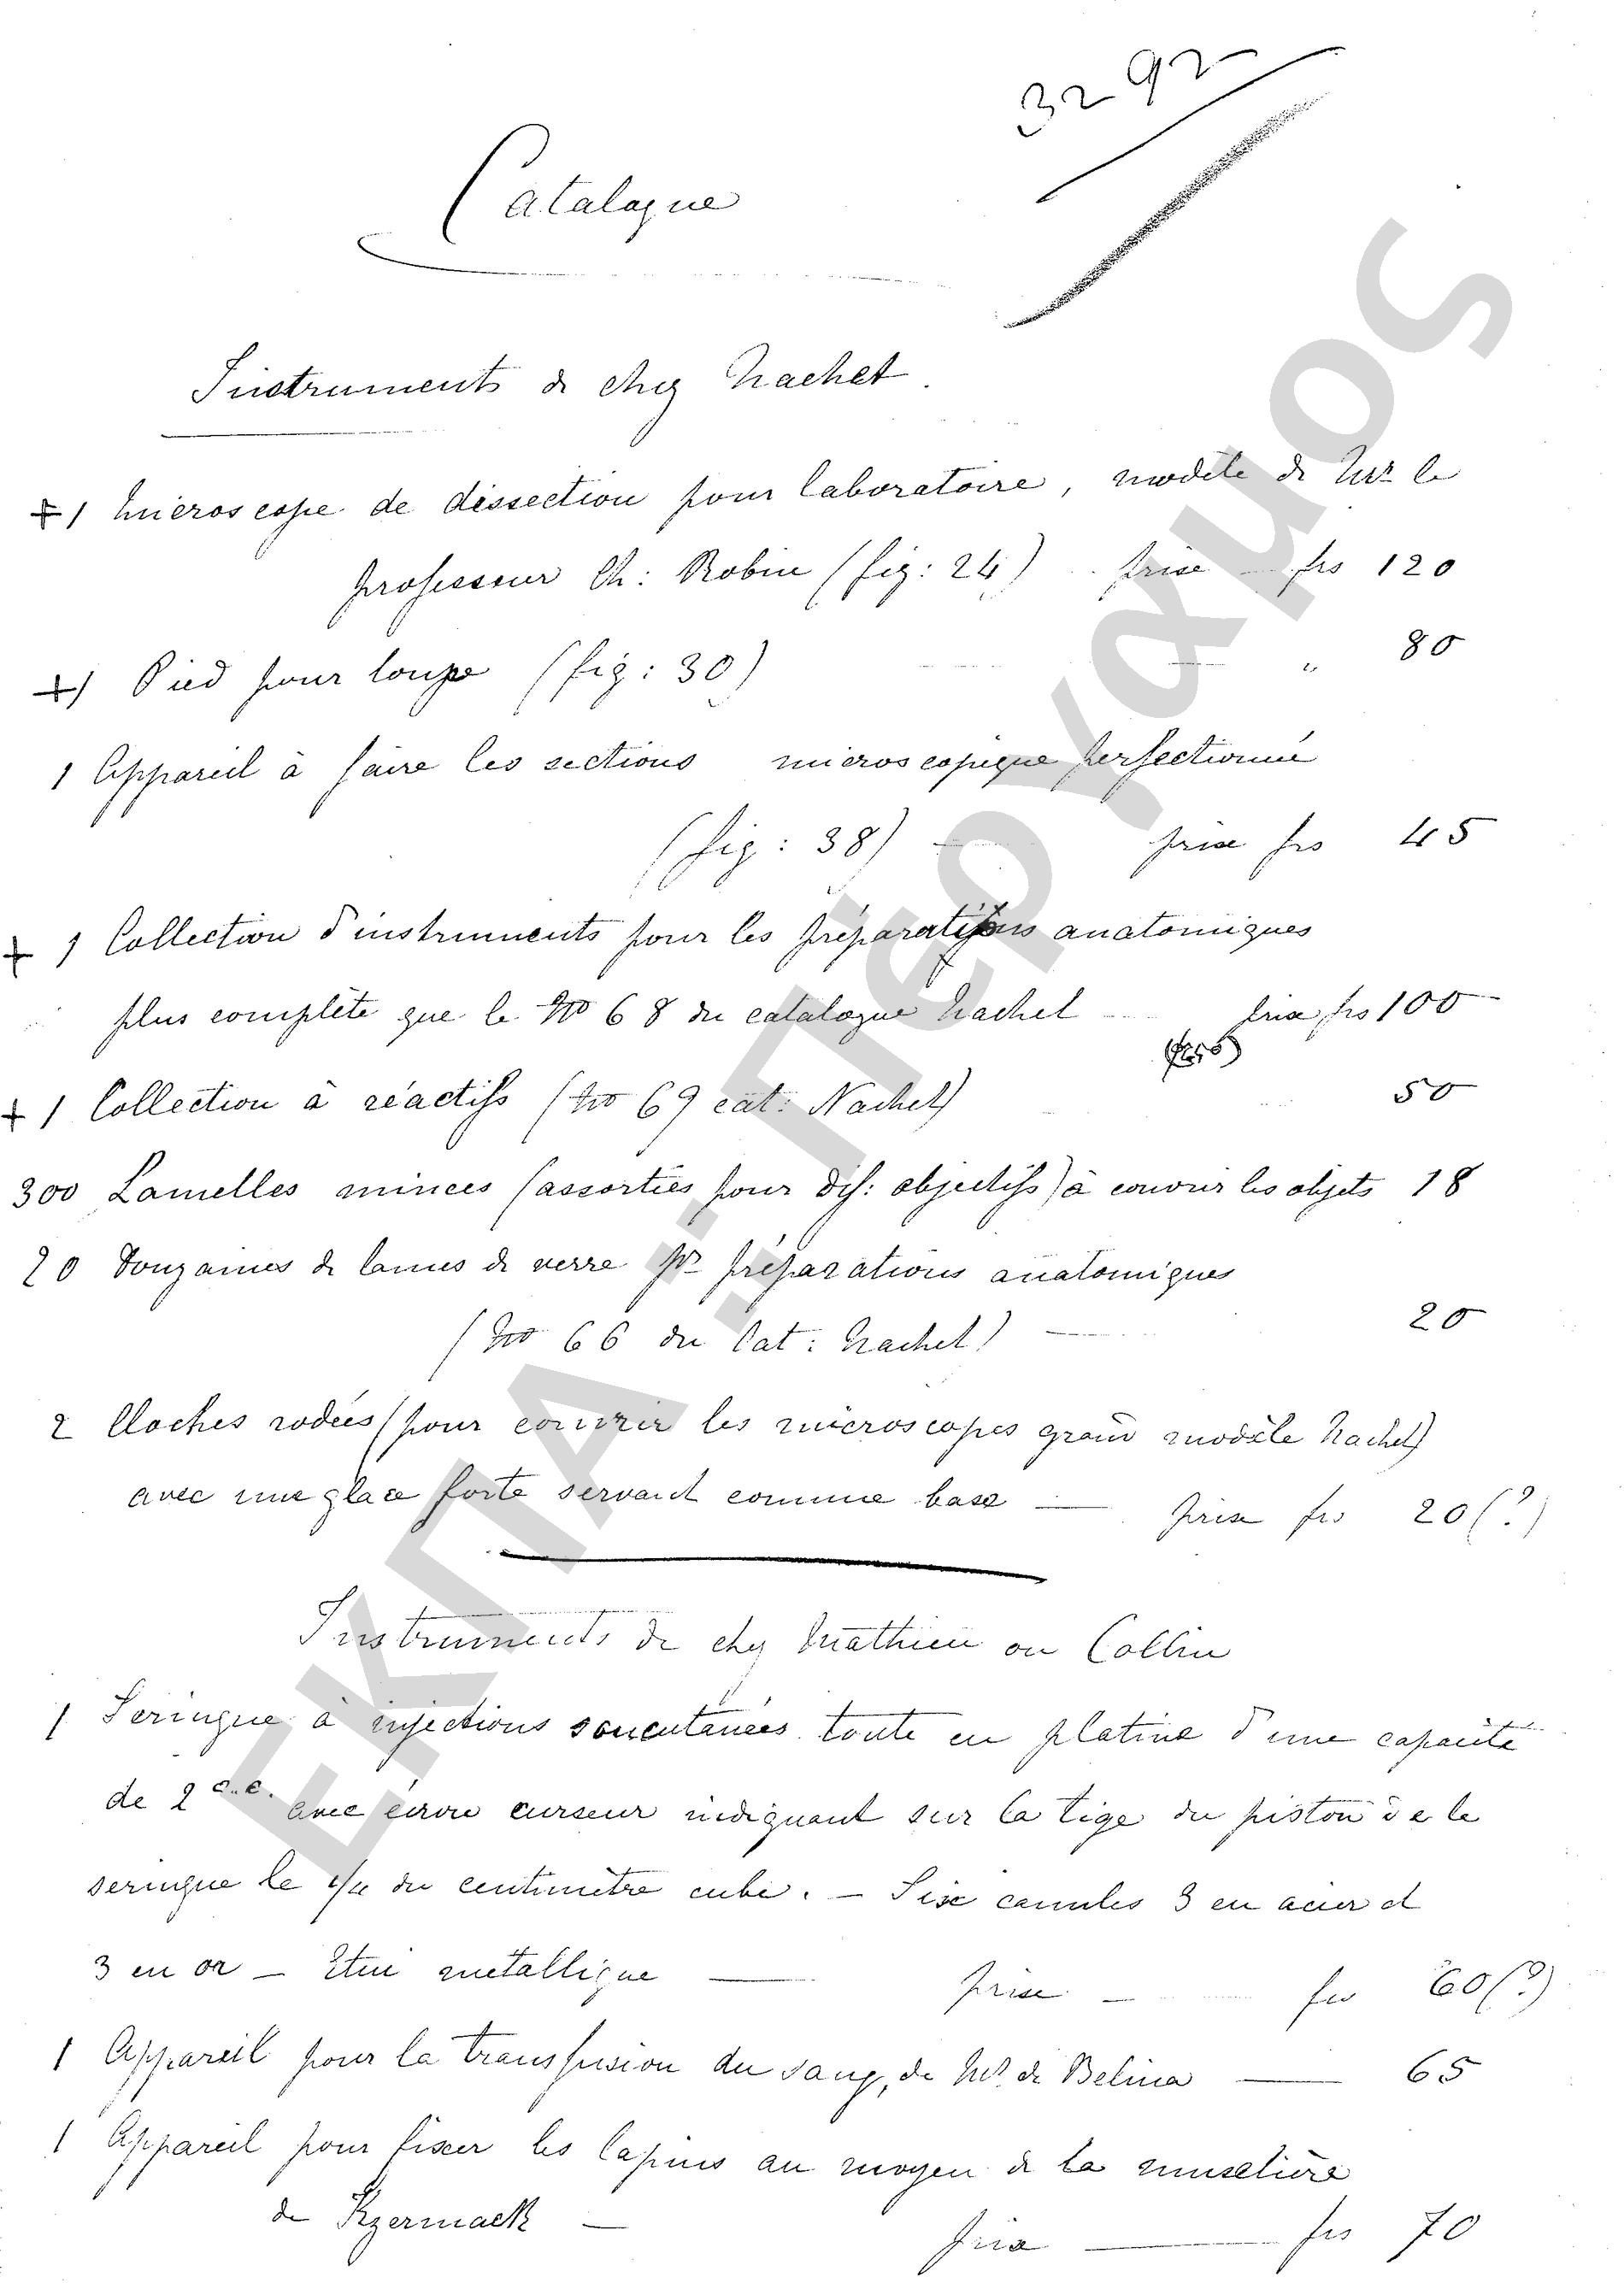 3292
Catalogue
Instruments de chez Nachet
+ 1 Microscope de dissection pour laboratoire, modèle de Mr le
Professeur Ch: Robin (fig: 24) Prix frs 120
+ 1 Pied pour loupe (fig: 30) " 80
1 Appareil à faire les sections microscopique perfectionné
(fig: 38) — prix frs 45
+ 1 Collection d'instruments pour les préparations anatomiques
plus complète que le No 68 du catalogue Nachet prix frs 100
+ 1 Collection à réactifs (No 69 cat: Nachet) 50
300 Lamelles minces (assorties pour dif: objectifs) à couvrir les objets 18
20 Douzaines de lames de verre pr préparations anatomiques
(No 66 du Cat: Nachet) — 20
2 Cloches rodées (pour couvrir les microscopes grand modèle Nachet)
avec une glace forte servant comme base — Prix frs 20 (?)
Instruments de chez Mathieu ou Collin
1 Seringue à injections soucutanées toute en platine d'une capacité
de 2 c.c. avec écrou curseur indiquant sur la tige du piston de la
seringue le du centimètre cube. — Six canules 3 en acier et
3 en or — Etui métallique — Prix — frs 60 (?)
1 Appareil pour la transfusion du sang, de Mr de Belina — 65
1 Appareil pour fixer les lapins au moyen de la muselière
de Czermack — Prix — frs 70
ΕΚΠΑ - Ιστορικός